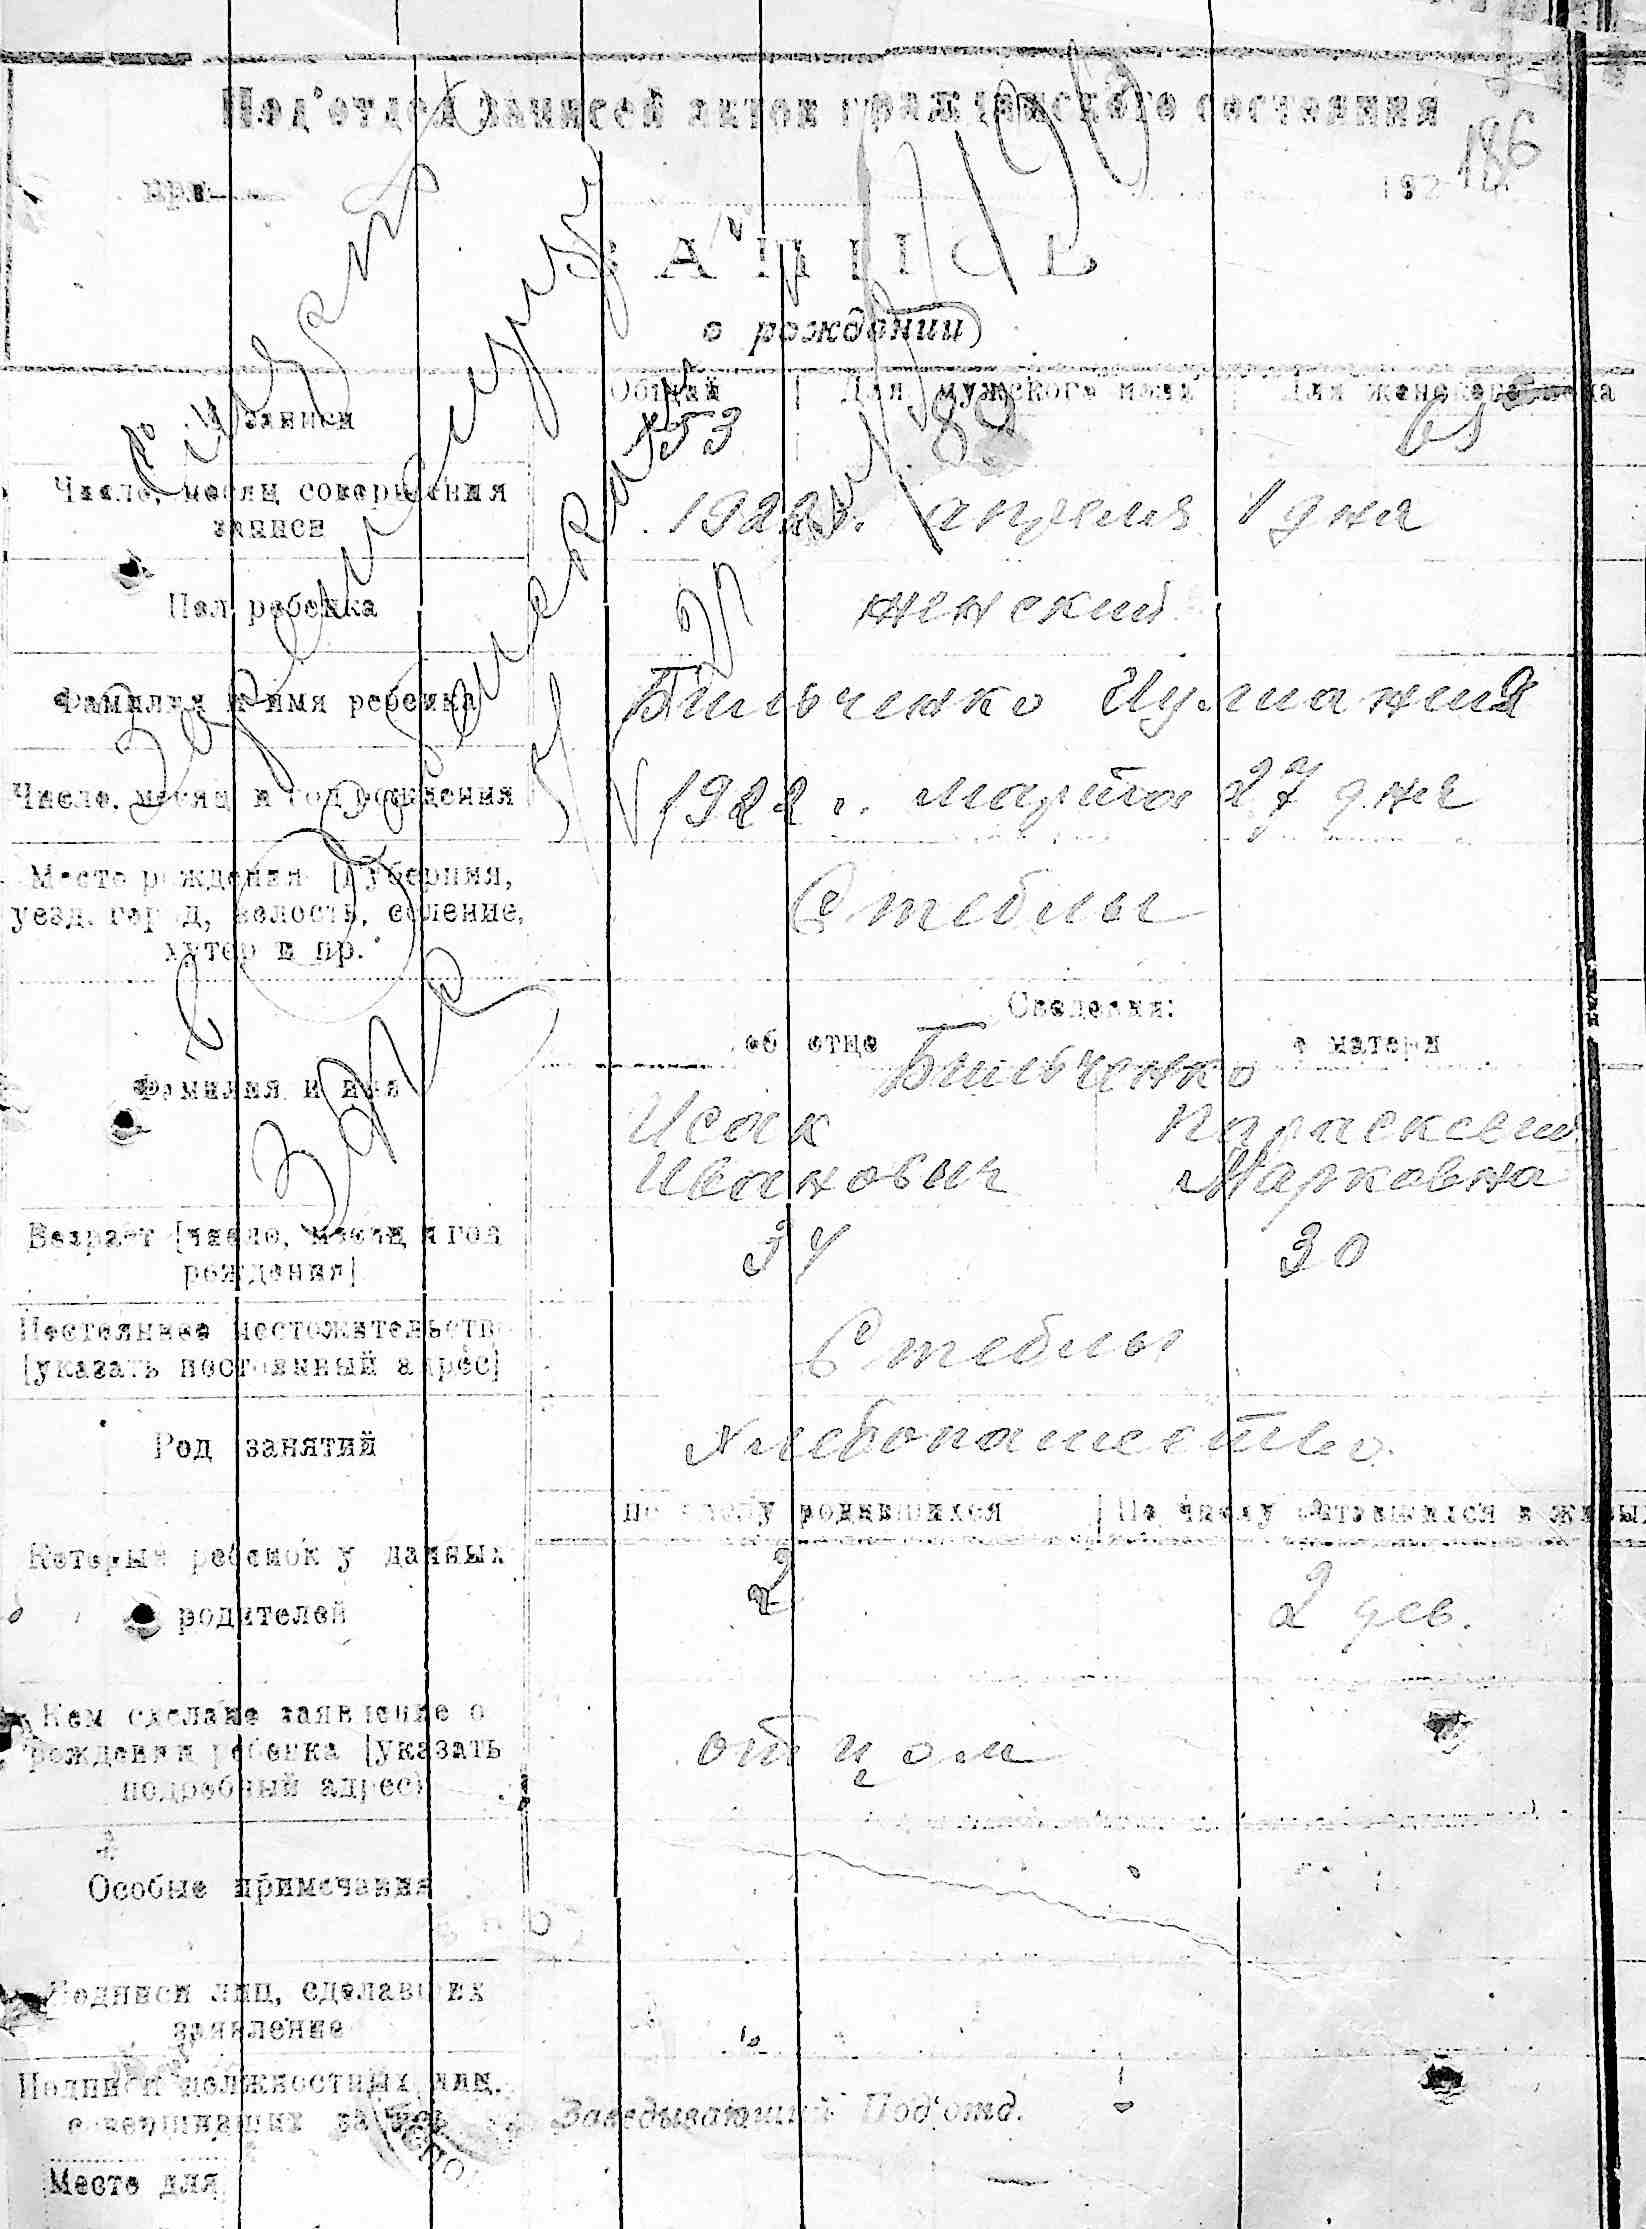 Под'отдел записей актов гражданского состояния
при
192
186
ЗАПИСЬ
о рождении
№ записи
Общий | Для мужского пола | Для женского пола
153
89
65
Число, месяц совершения
записи
1922 г. апреля 1 дня
Пол ребенка
женский
Фамилия и имя ребенка
Бильченко Иулиания
Число, месяц и год рождения
1922 г. марта 27 дня
Место рождения [губерния,
уезд, город, волость, селение,
хутор и пр.
Стеблы
Сведения:
об отце
о матери
Фамилия и имя
Бильченко
Исак
Параскевия
Иванович
Марковна
Возраст [число, месяц и год
рождения]
34
30
Постоянное местожительств
[указать постоянный адрес]
Стеблы
Род занятий
Хлебопашество.
По числу родившихся | По числу оставшихся в живых
Который ребенок у данных
родителей
2
2 дев.
Кем сделано заявление о
рождении ребенка [указать
подробный адрес]
отцом
Особые примечания
Подписи лиц, сделавших
заявление
Подписи должностных лиц,
совершивших запись
Заведывающий Под'отд.
Место для